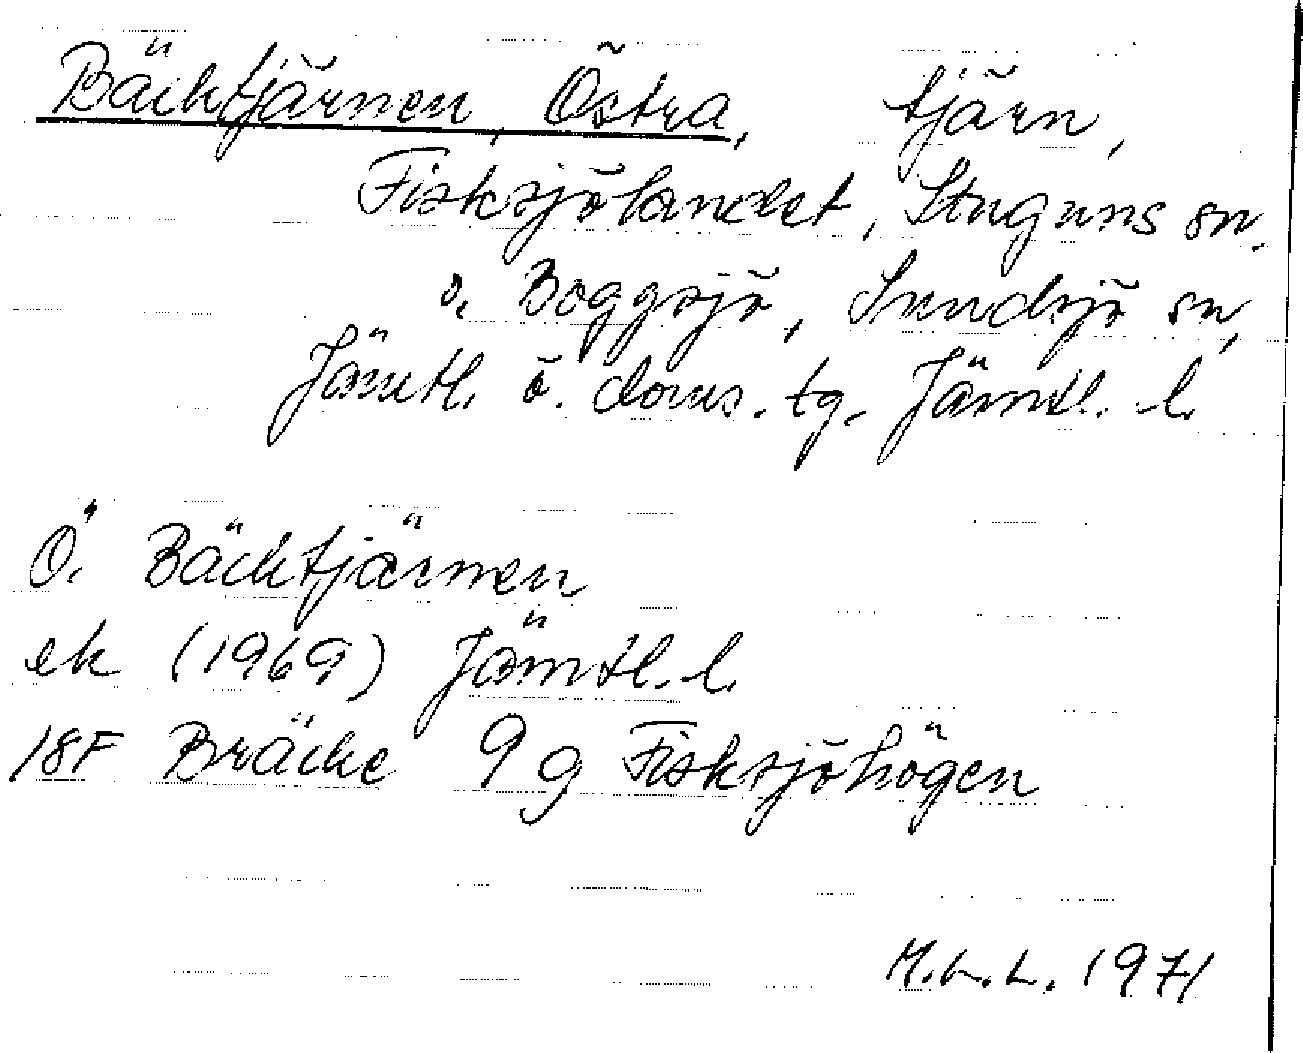 Bäcktjärnen, Östra, tjärn,
Fisksjölandet, Stuguns sn.
o. Boggsjö, Sundsjö sn,
Jämtl. ö. doms. tg. Jämtl. l.
Ö. Bäcktjärnen
ek (1969) Jämtl. l.
18F Bräcke 9g Fisksjöhögen
M.L.L. 1971